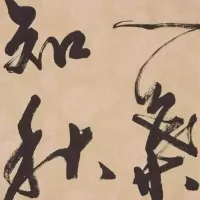 一葉
知秋